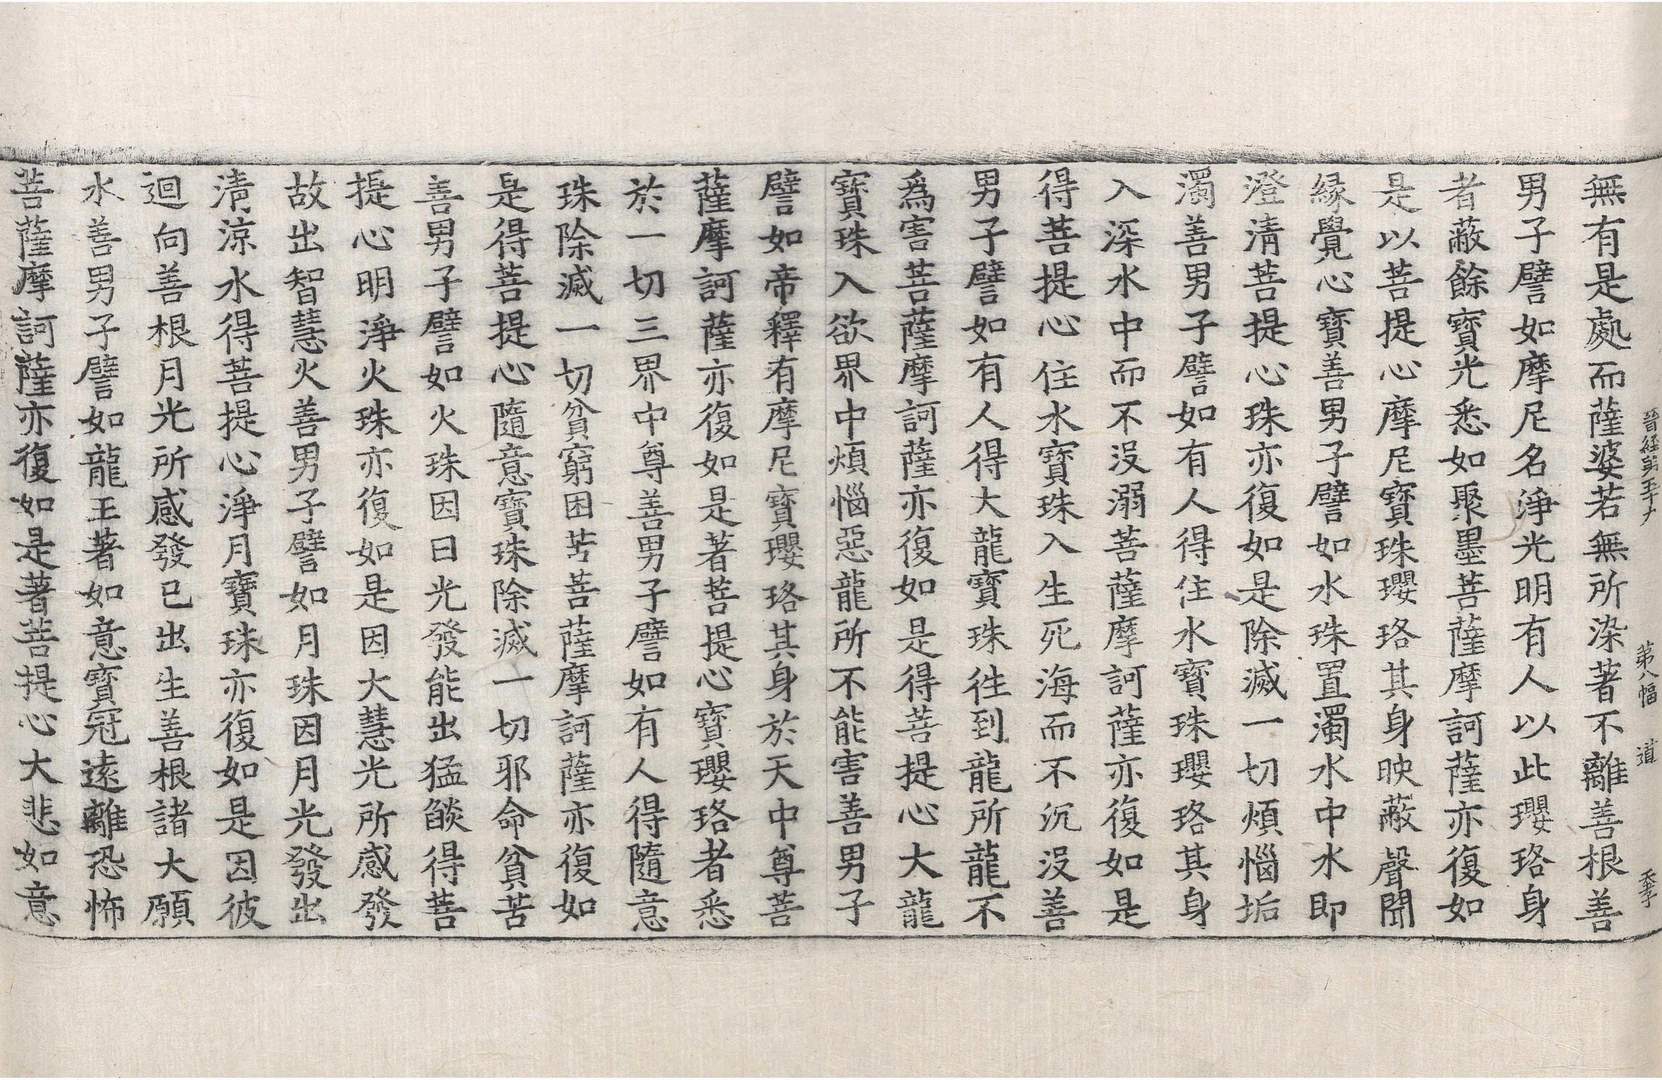 晉經第五十九 第八幅 道
無有是處而薩婆若無所染著不離善根善
男子譬如摩尼名淨光明有人以此瓔珞身
者蔽餘寶光悉如聚墨菩薩摩訶薩亦復如
是以菩提心摩尼寶珠瓔珞其身映蔽聲聞
緣覺心寶善男子譬如水珠置濁水中水即
澄清菩提心珠亦復如是除滅一切煩惱垢
濁善男子譬如有人得住水寶珠瓔珞其身
入深水中而不沒溺菩薩摩訶薩亦復如是
得菩提心住水寶珠入生死海而不沉沒善
男子譬如有人得大龍寶珠往到龍所龍不
爲害菩薩摩訶薩亦復如是得菩提心大龍
寶珠入欲界中煩惱惡龍所不能害善男子
譬如帝釋有摩尼寶瓔珞其身於天中尊菩
薩摩訶薩亦復如是著菩提心寶瓔珞者悉
於一切三界中尊善男子譬如有人得隨意
珠除滅一切貧窮困苦菩薩摩訶薩亦復如
是得菩提心隨意寶珠除滅一切邪命貧苦
善男子譬如火珠因日光發能出猛燄得菩
提心明淨火珠亦復如是因大慧光所感發
故出智慧火善男子譬如月珠因月光發出
清涼水得菩提心淨月寶珠亦復如是因彼
迴向善根月光所感發已出生善根諸大願
水善男子譬如龍王著如意寶冠遠離恐怖
菩薩摩訶薩亦復如是著菩提心大悲如意